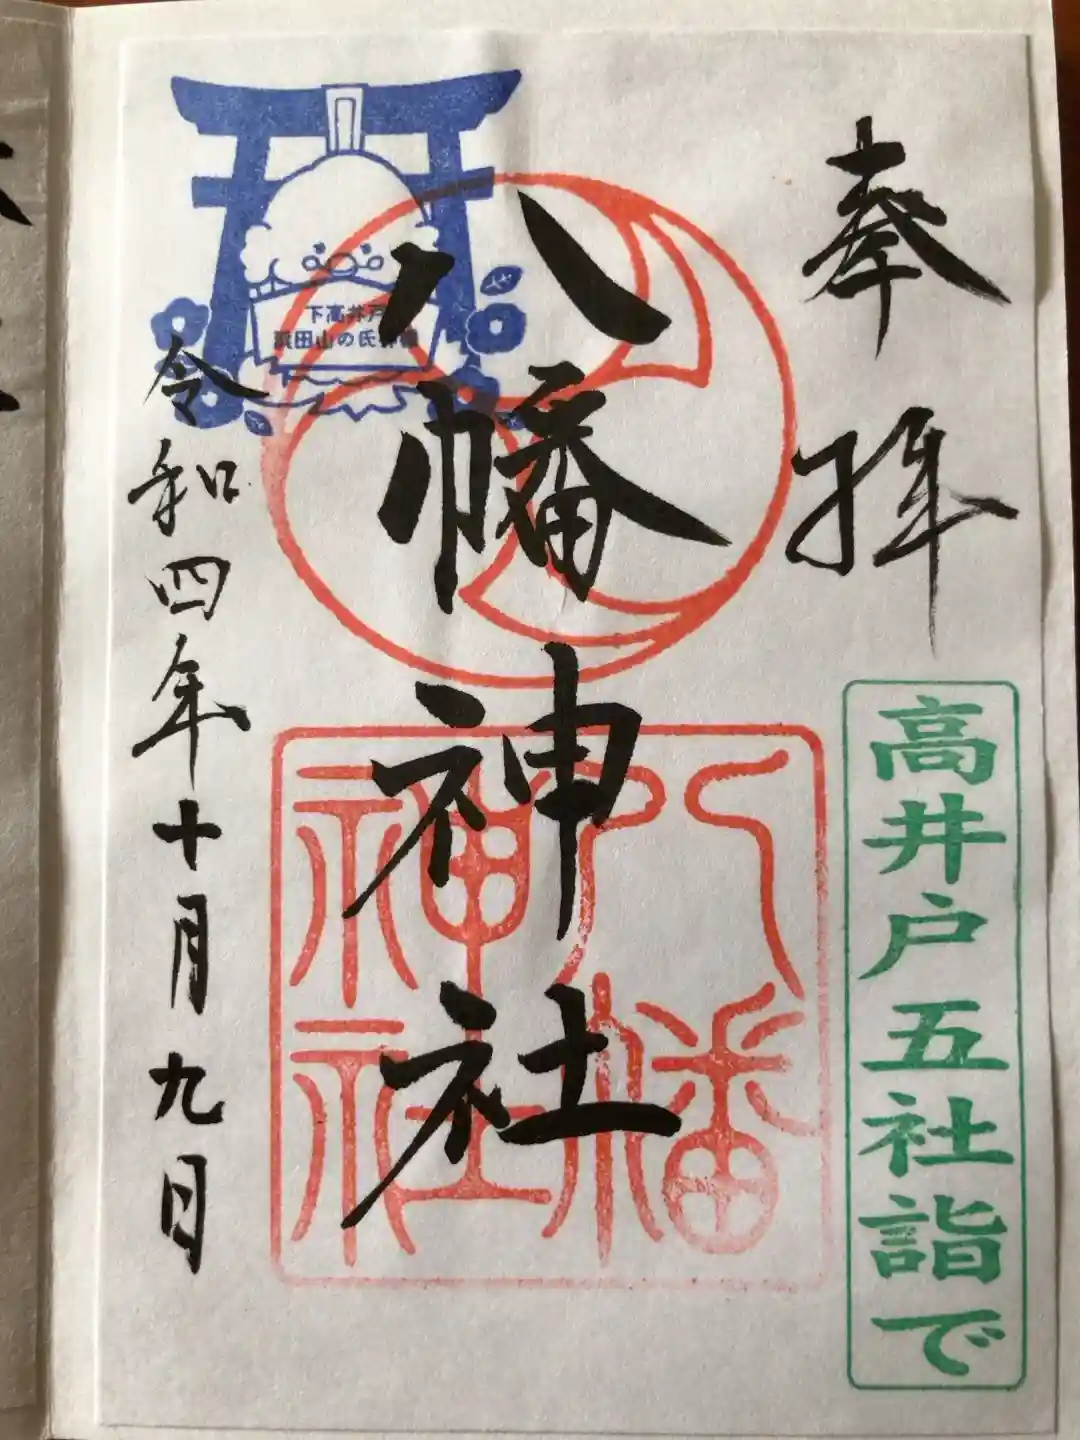 奉拝
高井戸五社詣で
八幡神社
八幡神社
下高井戸
浜田山の氏神様
令和四年十月九日